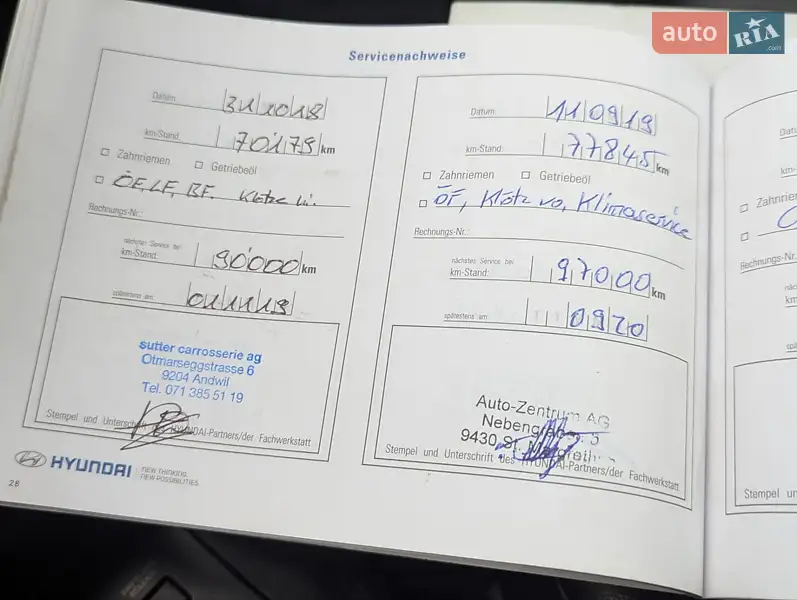 auto RIA .com
Servicenachweise
Datum: 31 10 18
km-Stand: 70'179 km
Zahnriemen Getriebeöl
ÖF, LF, BF. Klötze hi.
Rechnungs-Nr.:
nächster Service bei
km-Stand: 90'000 km
spätestens am: 01 11 19
sutter carrosserie ag
Otmarseggstrasse 6
9204 Andwil
Tel. 071 385 51 19
Stempel und Unterschrift des HYUNDAI-Partners/der Fachwerkstatt
HYUNDAI NEW THINKING.
NEW POSSIBILITIES.
28
Datum: 11 09 19
km-Stand: 77845 km
Zahnriemen Getriebeöl
ÖF, Klötz vo, Klimaservice
Rechnungs-Nr.:
nächster Service bei
km-Stand: 97000 km
spätestens am: 09 20
Auto-Zentrum AG
9430 St. Margrethen
Stempel und Unterschrift des HYUNDAI-Partners/der Fachwerkstatt
km-
Zahnriemen
Rechnungs-Nr.
km
Stempel un